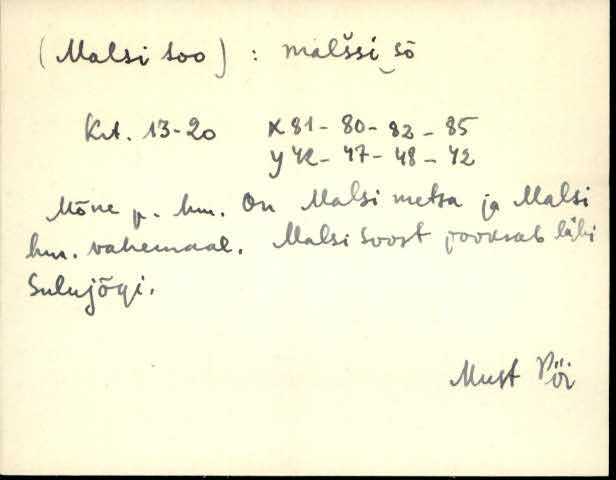 (Malsi soo) : malšsi‿sō
Krt. 13-20 X 81 - 80 - 82 - 85
y 42 - 47 - 48 - 42
Mõne p. hm. On Malsi metsa ja Malsi
hm. vahemaal. Malsi soost jooksab läbi
Sulujõgi.
Must Pöi